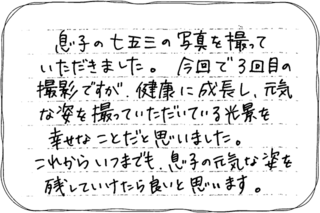 息子の七五三の写真を撮って
いただきました。 今回で3回目の
撮影ですが、健康に成長し、元気
な姿を撮っていただいている光景を
幸せなことだと思いました。
これからいつまでも、息子の元気な姿を
残していけたら良いと思います。